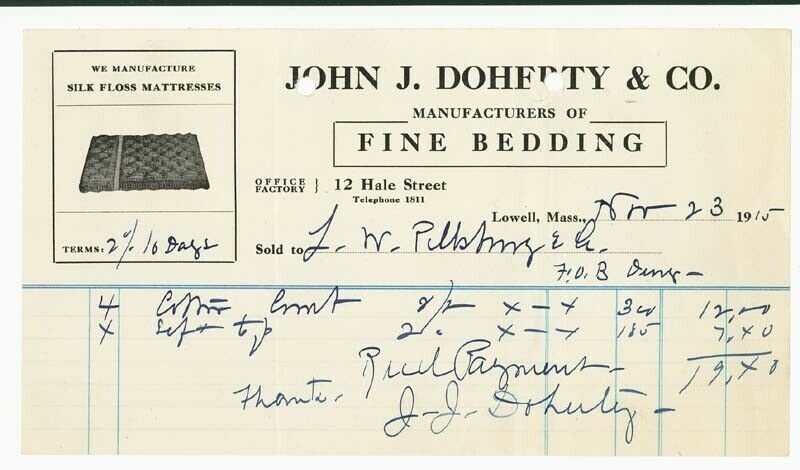 WE MANUFACTURE
SILK FLOSS MATTRESSES
TERMS: 2% 10 Days
JOHN J. DOHERTY & CO.
MANUFACTURERS OF
FINE BEDDING
OFFICE
FACTORY } 12 Hale Street
Telephone 1811
Lowell, Mass., Nov 23 1915
Sold to L. W. Pillsbury & Co.
F.O.B Derry -
4 Cotton 300 12,00
Soft top 185 7,40
Rec'd Payment - 19,40
Thanks.
J-J- Doherty -